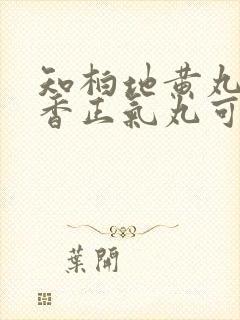 知柏地黄丸
香正氣丸可
葉開